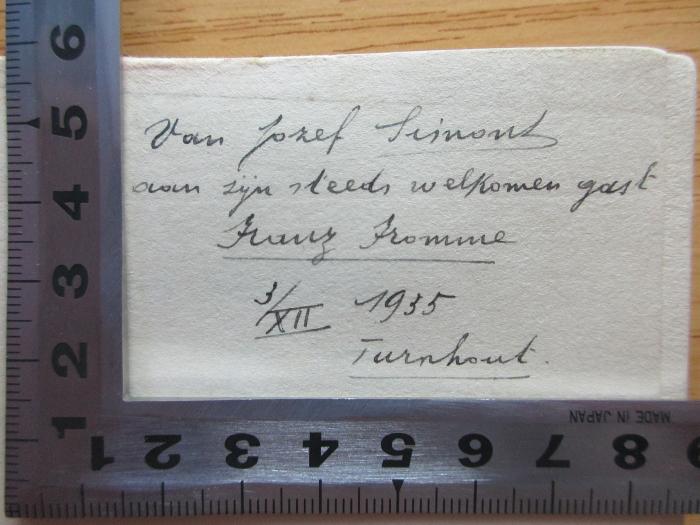 Van Jozef Simons
aan zijn steeds welkomen gast
Franz Fromme
3/XII 1935
Turnhout.
6
5
4
3
2
1
1 2 3 4 5 6 7 8 9
MADE IN JAPAN